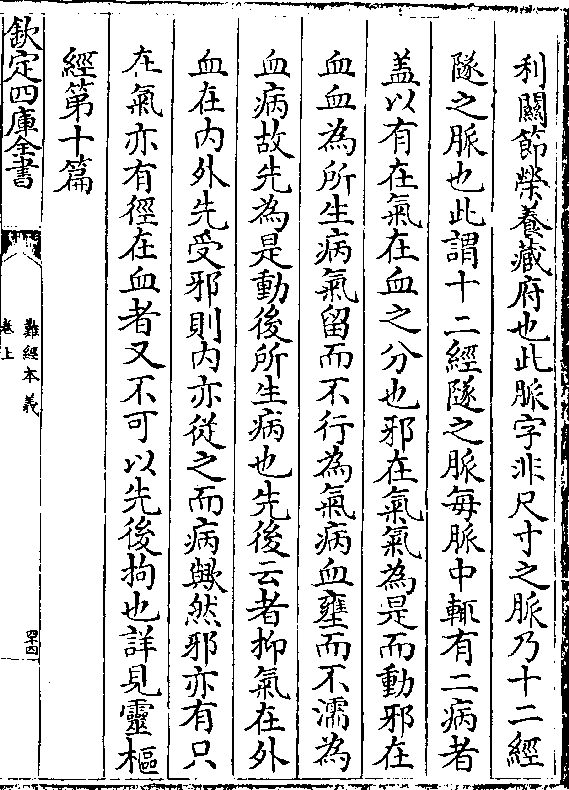 利關節榮養藏府也此脈字非尺寸之脈乃十二經
隧之脈也此謂十二經隧之脈每脈中輒有二病者
盖以有在氣在血之分也邪在氣氣為是而動邪在
血血為所生病氣留而不行為氣病血壅而不濡為
血病故先為是動後所生病也先後云者抑氣在外
血在内外先受邪則内亦從之而病歟然邪亦有只
在氣亦有徑在血者又不可以先後拘也詳見靈樞
經第十篇
欽定四庫全書
難經本義
卷上
四十四